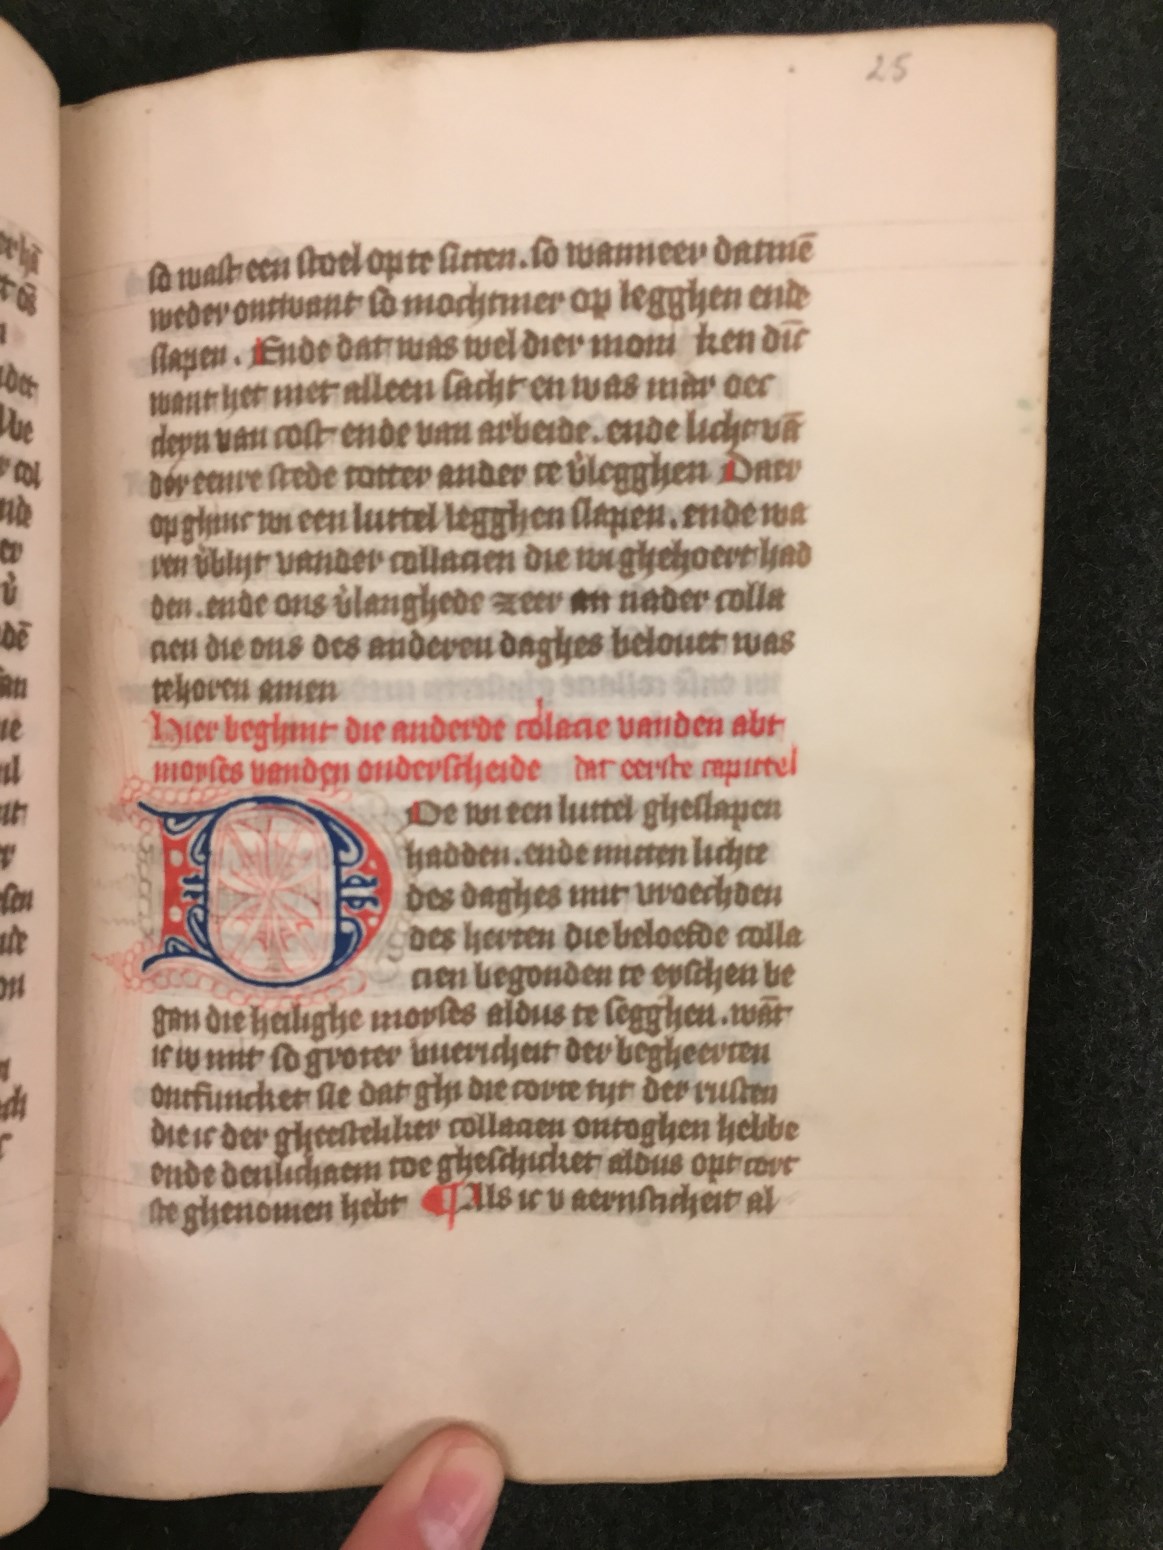 25
so wast een stoel op te sitten. so wanneer datmē
weder ontwant so mochtmer op legghen ende
slapen. Ende dat was wel dier moni ken dīc
want het niet alleen sacht en was mār oec
cleyn van cost ende van arbeide. ende licht vā
der eenre stede totter ander te v̓legghen Daer
op ghinc wi een luttel legghen slapen. ende wa
ren v̓blijt vander collacien die wi ghehoert had
den. ende ons v̓langhede zeer an nader colla
cien die ons des anderen daghes belouet was
te horen amen
Hier beghint die anderde collacie vanden abt
moyses vanden onderscheide dat eerste capittel
D
Oe wi een luttel gheslapen
hadden. ende mitten lichte
des daghes mit vroechden
des herten die beloefde colla
cien begonden te eyschen be
gan die heilighe moyses aldus te segghen. wāt
ic iv mit so groter vuericheit der begheerten
ontfuncket sie dat ghi die corte tijt der rusten
die ic der gheesteliker collacien ontoghen hebbe
ende den lichaem toe gheschicket aldus opt cort
ste ghenomen hebt ¶ Als ic v aernsticheit al